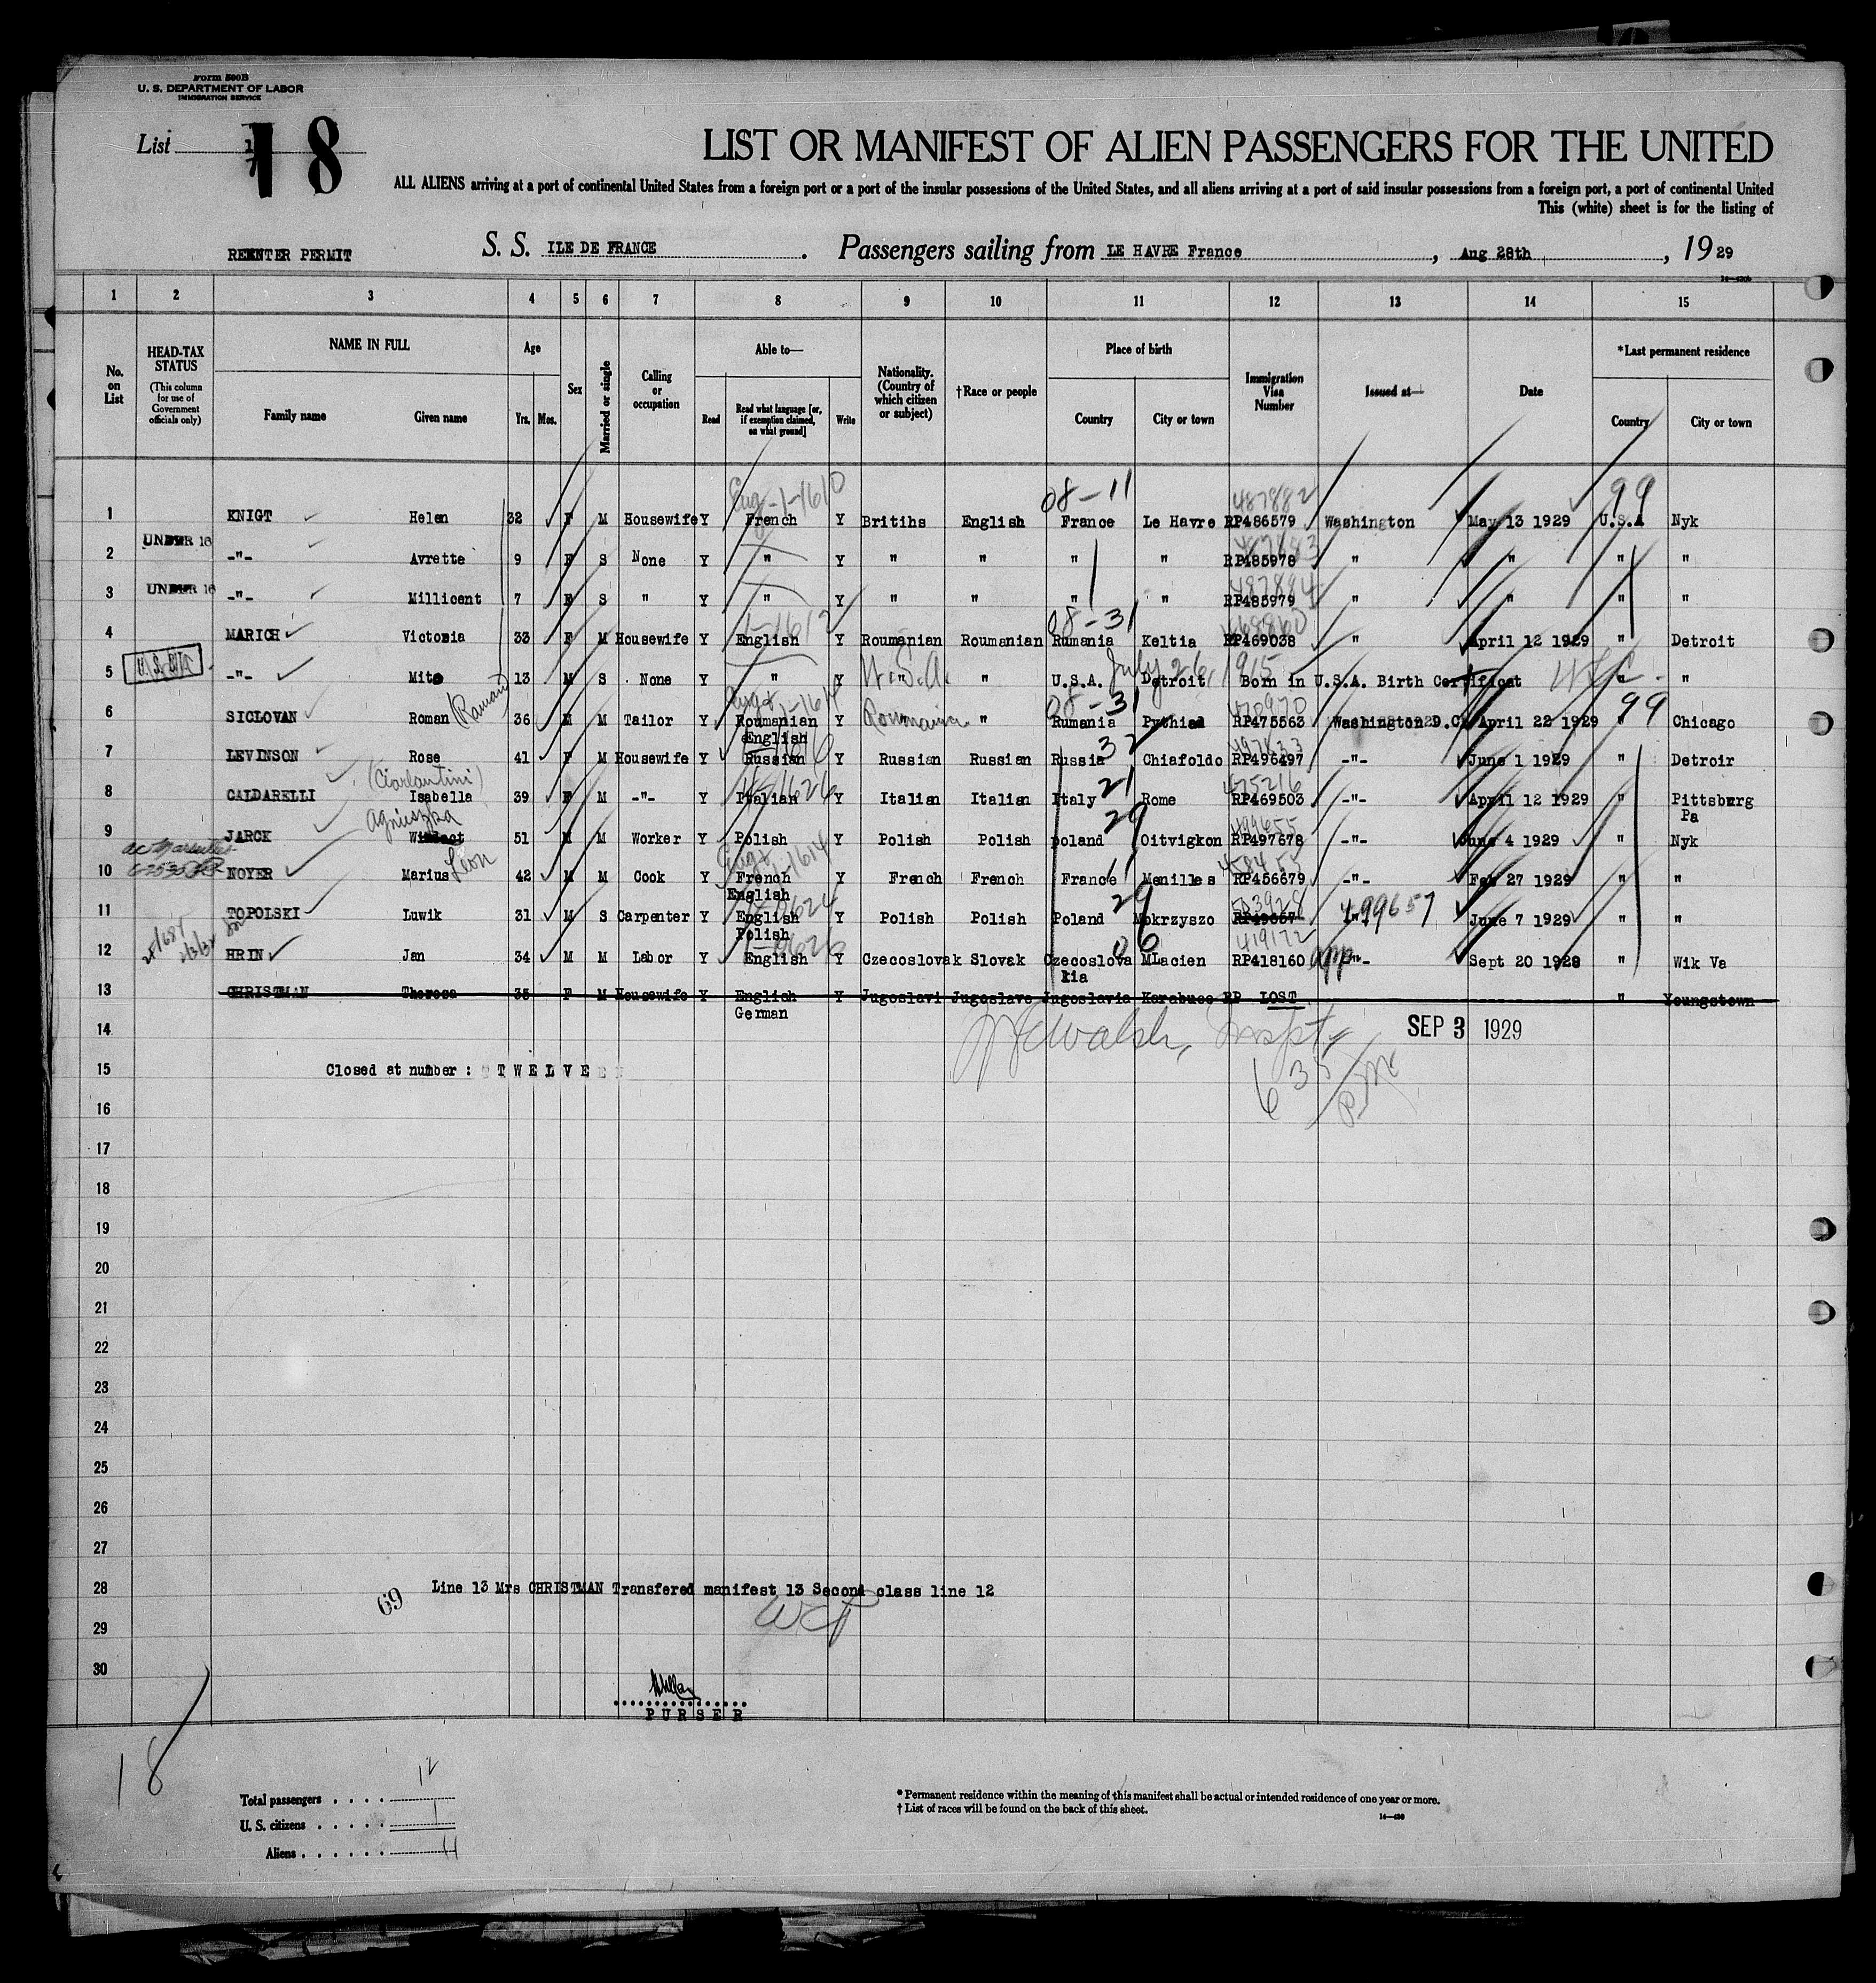 Form 500B
U. S. DEPARTMENT OF LABOR
IMMIGRATION SERVICE
List 18
LIST OR MANIFEST OF ALIEN PASSENGERS FOR THE UNITED
ALL ALIENS arriving at a port of continental United States from a foreign port or a port of the insular possessions of the United States, and all aliens arriving at a port of said insular possessions from a foreign port, a port of continental United
This (white) sheet is for the listing of
REENTER PERMIT S. S. ILE DE FRANCE. Passengers sailing from LE HAVRE France, Aug 28th, 1929
1 2 3 4 5 6 7 8 9 10 11 12 13 14 15
No. on List
HEAD-TAX STATUS (This column for use of Government officials only)
NAME IN FULL Family name Given name
Age Yrs. Mos.
Sex
Married or single
Calling or occupation
Able to— Read Read what language [or, if exemption claimed, on what ground] Write
Nationality. (Country of which citizen or subject)
†Race or people
Place of birth Country City or town
Immigration Visa Number
Issued at—
Date
*Last permanent residence Country City or town
Eng-1-1610 08-11 487882 99
1 KNIGT Helen 32 F M Housewife Y French Y Britihs English France Le Havre RP486579 Washington May 13 1929 U.S.A Nyk
UNDER 16 487883
2 -"- Avrette 9 F S None Y " Y " " " " RP485978 " " " "
UNDER 16 487884
3 -"- Millicent 7 F S " Y " Y " " " " RP485979 " " " "
1-1612 08-31 469860
4 MARICH Victoria 33 F M Housewife Y English Y Roumanian Roumanian Rumania Keltia RP469038 " April 12 1929 " Detroit
U.S.A. July 26, 1915
5 -"- Mito 13 M S None Y " Y " " U.S.A. Detroit Born In U.S.A. Birth Certificat " "
08-31 470970 99
6 SICLOVAN Roman 36 M M Tailor Y Roumanian English Y Roumanian " Rumania Pythied RP475563 Washington D.C. April 22 1929 " Chicago
32 497833
7 LEVINSON Rose 41 F M Housewife Y Russian Y Russian Russian Russia Chiafoldo RP496497 -"- June 1 1929 " Detroir
(Ciarlantini) 21 475216
8 CALDARELLI Isabella 39 F M -"- Y Italian Y Italian Italian Italy Rome RP469503 -"- April 12 1929 " Pittsburg Pa
Agnieszka 29 499655
9 JARCK 51 M M Worker Y Polish Y Polish Polish poland Oitvigkon RP497678 -"- June 4 1929 " Nyk
Léon 11 458455
10 NOYER Marius 42 M M Cook Y French English Y French French France Menilles RP456679 -"- Feb 27 1929 " "
29 503928 499657
11 TOPOLSKI Luwik 31 M S Carpenter Y English Polish Y Polish Polish Poland Mokrzyszo -"- June 7 1929 " "
06 419172
12 HRIN Jan 34 M M Labor Y English Y Czecoslovak Slovak Czecoslova kia MLacien RP418160 -"- Sept 20 1928 " Wik Va
13 CHRISTMAN Theresa 35 F M Housewife Y English German Y Jugoslavi Jugoslave Jugoslavia Karabuco RP LOST " Youngstown
14 Walsh, Inspt. SEP 3 1929
15 Closed at number : TWELVE
6 35 PM
16
17
18
19
20
21
22
23
24
25
26
27
28 Line 13 Mrs CHRISTMAN Transfered manifest 13 Second class line 12
69
29
30
PURSER
18
Total passengers 12
U. S. citizens 1
Aliens 11
* Permanent residence within the meaning of this manifest shall be actual or intended residence of one year or more.
† List of races will be found on the back of this sheet.